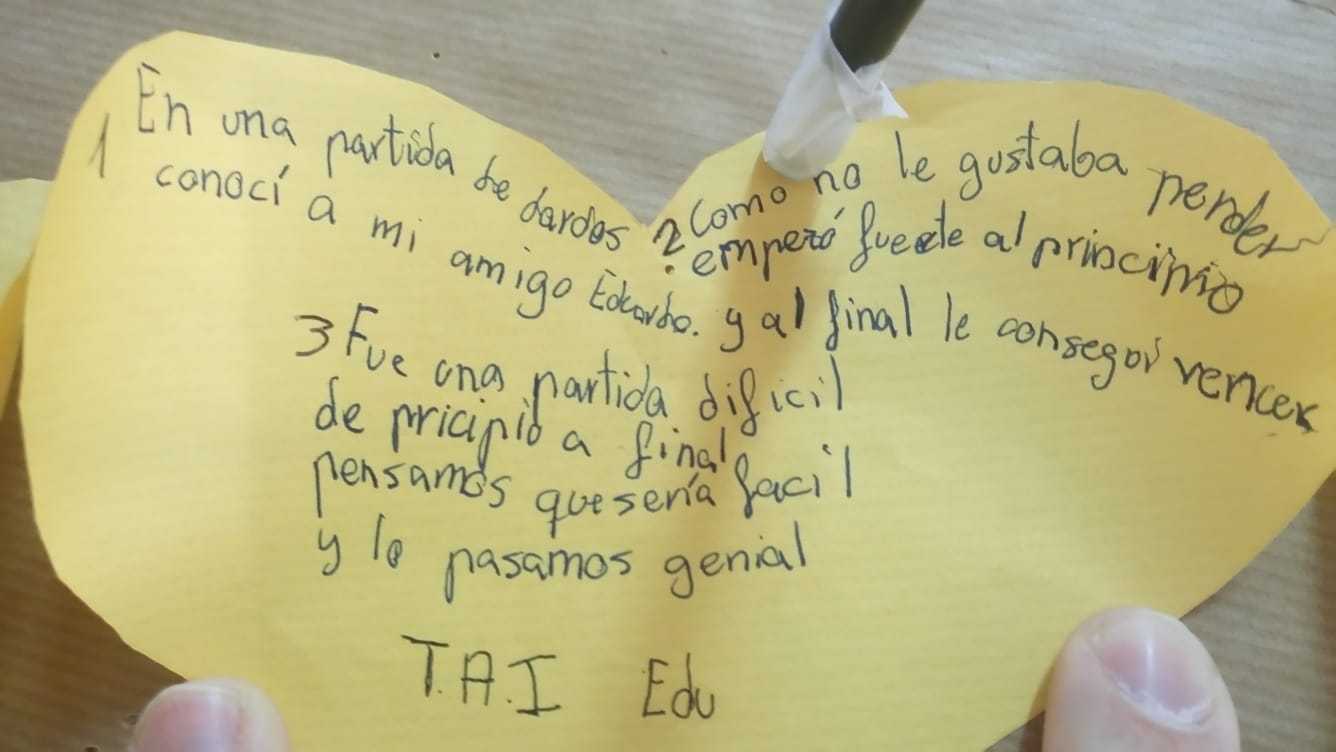 1 En una partida de dardos
conocí a mi amigo Eduardo.
2 Como no le gustaba perder
empezó fuerte al principio
y al final le conseguí vencer
3 Fue una partida dificil
de pricipio a final
pensamos que sería facil
y lo pasamos genial
T.A.I Edu